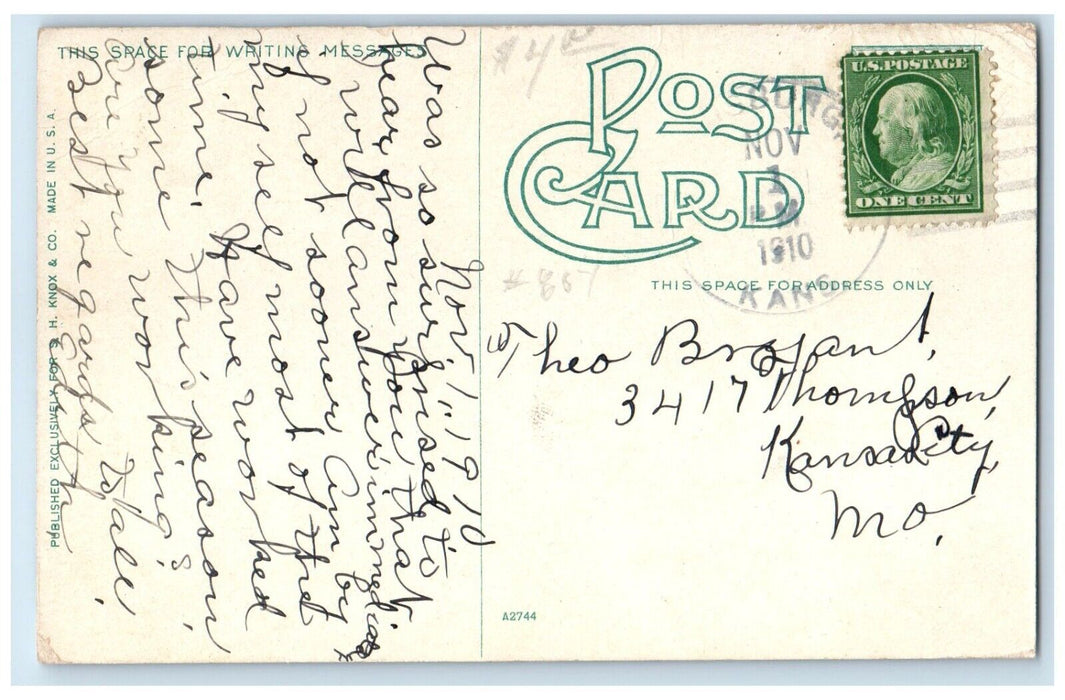 THIS SPACE FOR WRITING MESSAGES
Nov 1, 1910
Was so surprised to
hear from you that
I will answer immediately
if not sooner. Am by
my self most of the
time. Have worked
some this season.
Are you working?
Best regards to all.
PUBLISHED EXCLUSIVELY FOR H. KNOX & CO. MADE IN U. S. A.
$4 00
#857
POST
CARD
NOV
1
PM
1910
KANS
U.S. POSTAGE
ONE CENT
THIS SPACE FOR ADDRESS ONLY
Theo Bryant,
3417 Thompson,
Kansas City,
Mo.
A2744